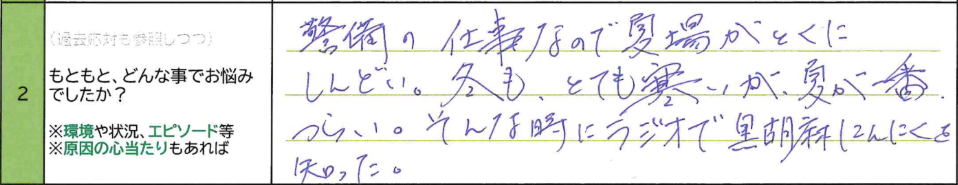 2
(過去応対も参照しつつ)
もともと、どんな事でお悩み
でしたか?
※環境や状況、エピソード等
※原因の心当たりもあれば
警備の仕事なので夏場がとくに
しんどい。冬も、とても寒いが、夏が一番
つらい。そんな時にラジオで黒胡麻にんにくを
知った。